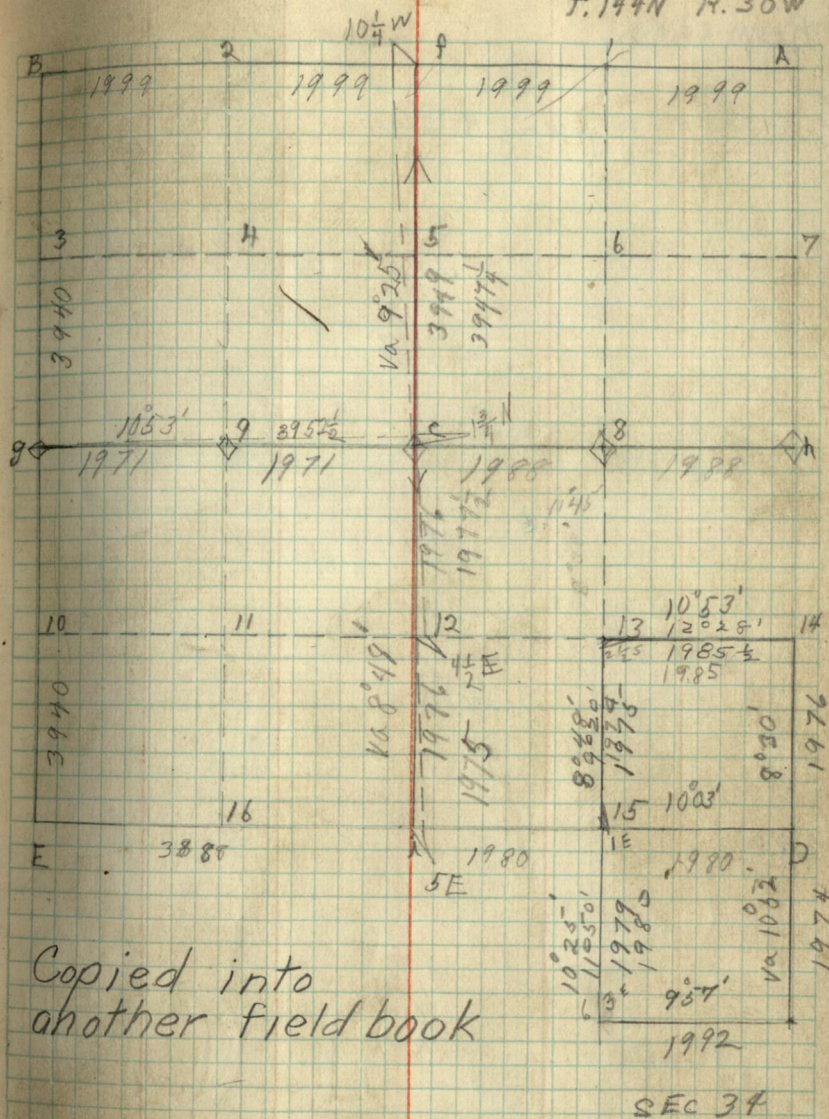 T.144N R.30W
10¼ W
B 2 f 1 A
1999 1999 1999 1999
3 4 5 6 7
3940 va 9°25' 3949 3947¼
10°53' 9 3952½ c 1¾ N 8
g 1971 1971 1988 1988 h
11°45'
1976 1977½
10 11 12 13 14
10°53'
12°28'
1985½
1985
4½ E
3940 va 8°48' 1976 1975 8°48' 1975 8°30' 1976
16 15 10°03'
1E
E 3888 1980 1980 D
5E
10°25' 11°50' 1979 1980 va 1974
3E 9°57'
1992
Copied into
another field book
SEC 34